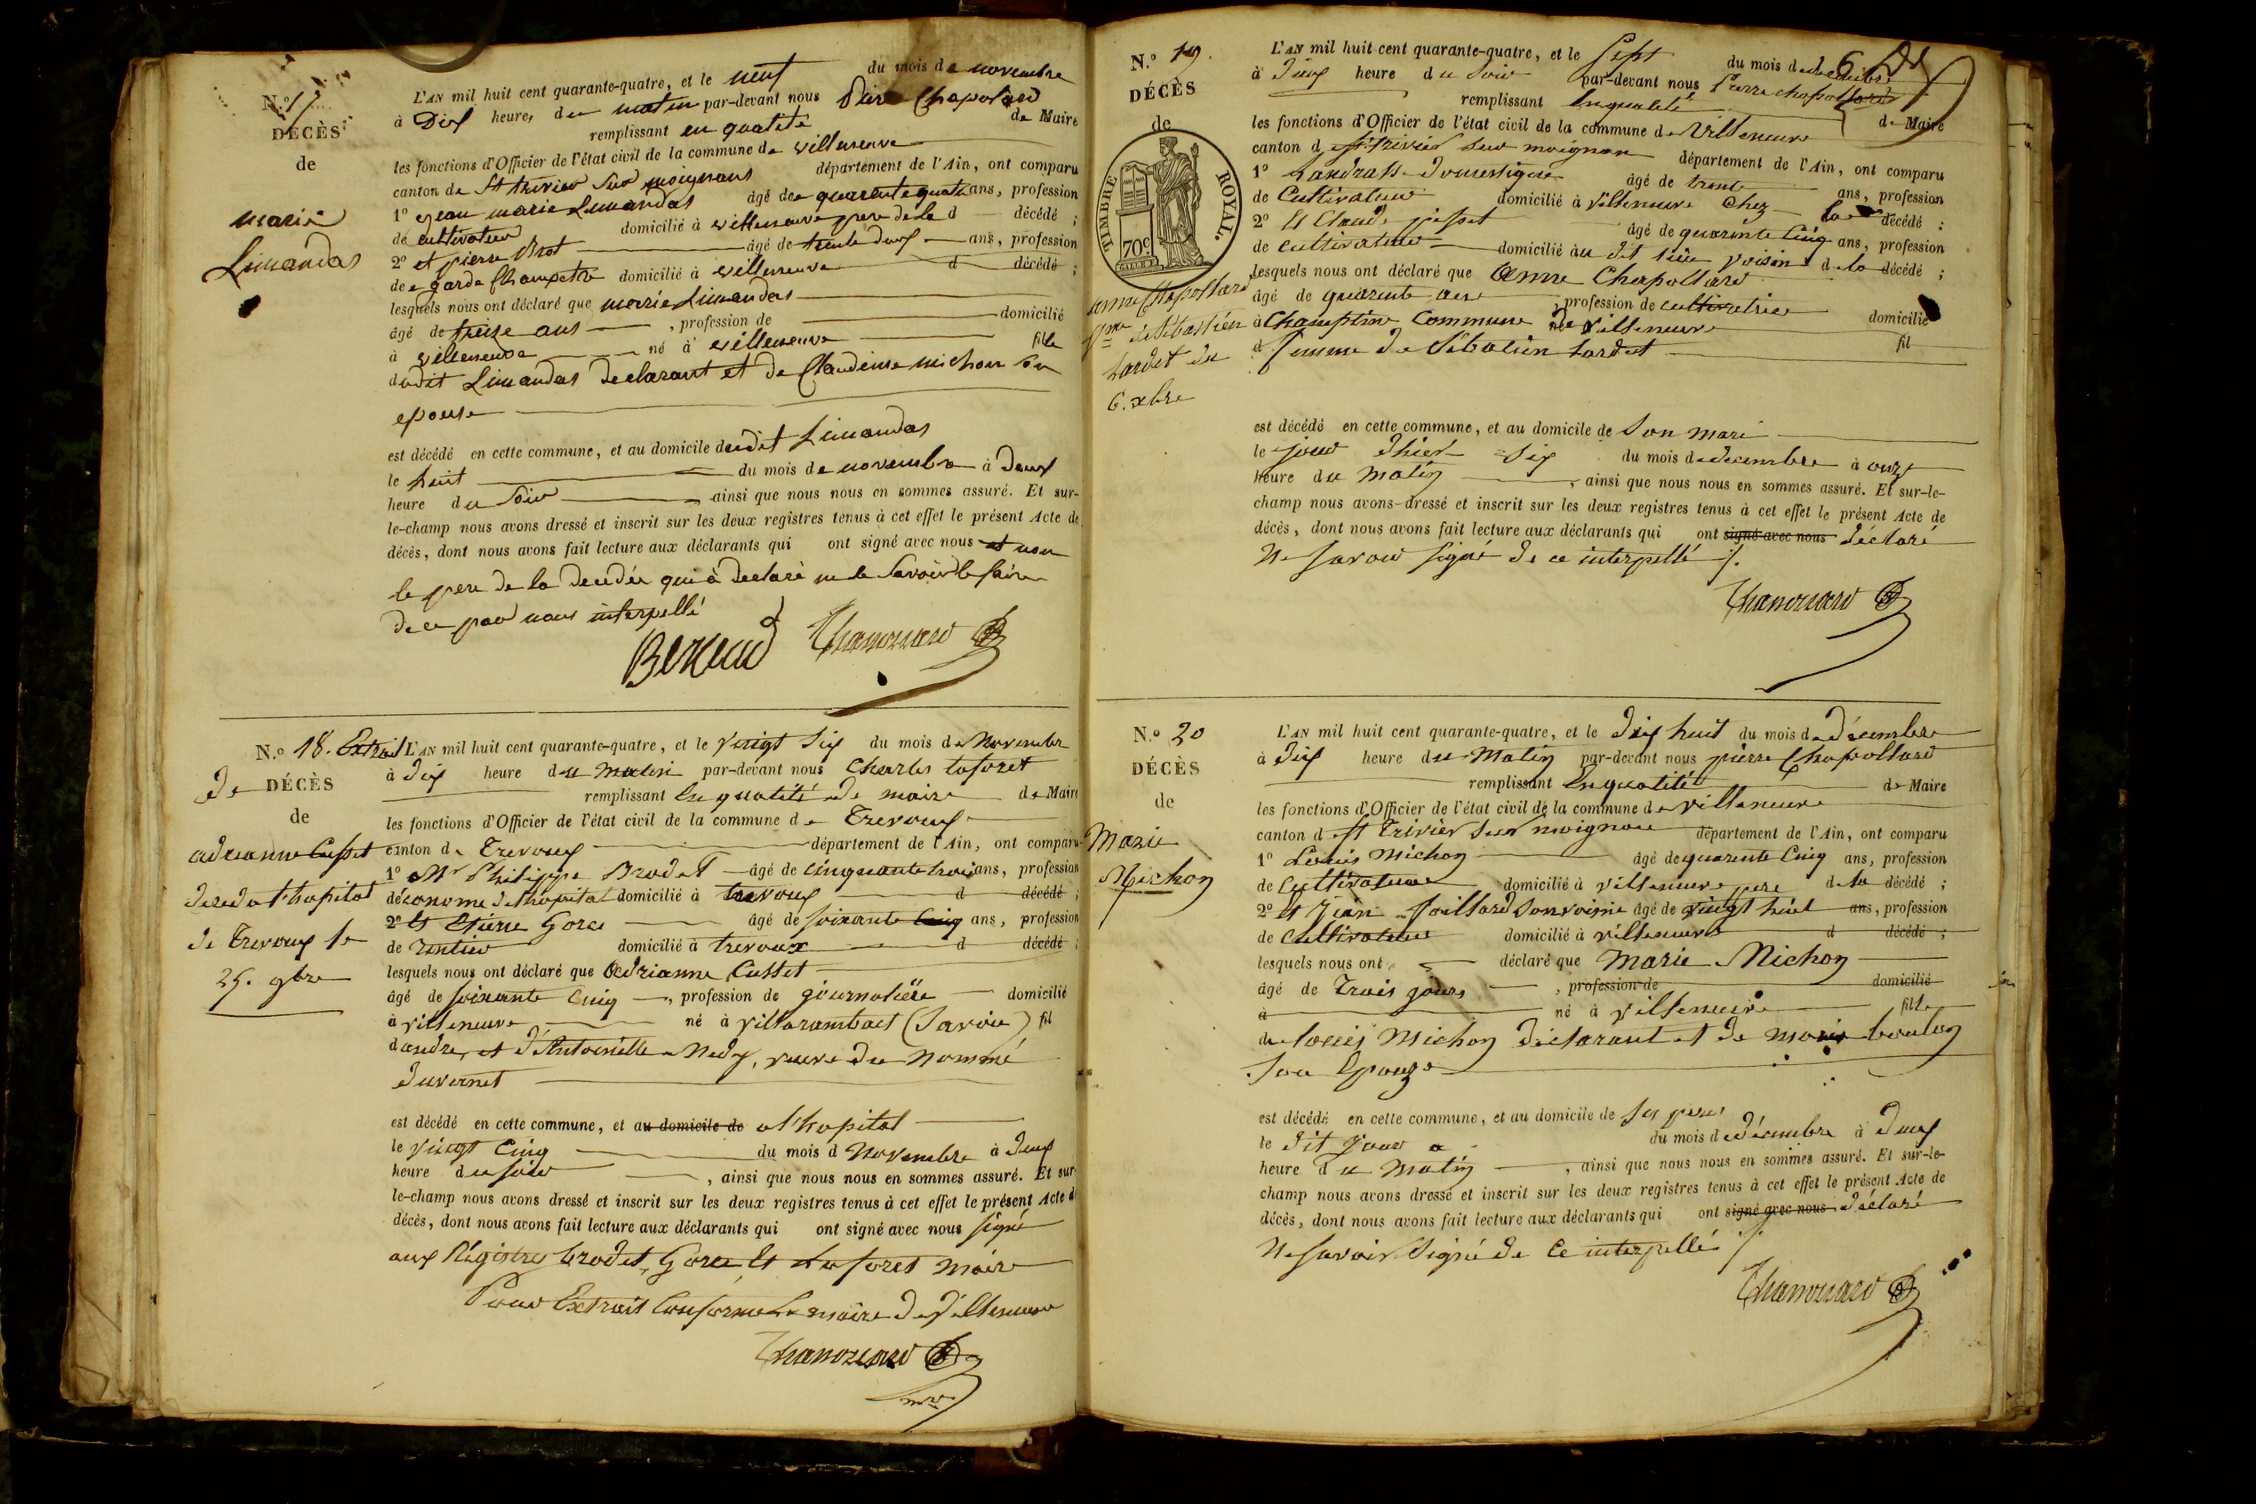 N.º 17
DÉCÈS
de
marie
Limandas
L'AN mil huit cent quarante-quatre, et le neuf du mois de novembre
à Dix heures du matin par-devant nous Pierre Chapolard
remplissant en qualité de Maire
les fonctions d'Officier de l'état civil de la commune de villeneuve
canton de St trivier Sur moignans département de l'Ain, ont comparu
1º jean marie Limandas âgé de quarente quatre ans, profession
de cultivateur domicilié à villeneuve pere de la d décédé ;
2º et pierre Brot âgé de trente deux ans, profession
de garde Champetre domicilié à villeneuve d décédé ;
lesquels nous ont déclaré que marie Limandas
âgé de treize ans , profession de domicilié
à villeneuve né à villeneuve fille
dudit Limandas declarant et de Claudine michon Son
epouse
est décédé en cette commune, et au domicile dudit Limandas
le huit du mois de novembre à deux
heure du Soir ainsi que nous nous en sommes assuré. Et sur-
le-champ nous avons dressé et inscrit sur les deux registres tenus à cet effet le présent Acte de
décès, dont nous avons fait lecture aux déclarants qui ont signé avec nous et non
le pere de la decedée qui à declaré ne le Savoir le faire
de ce par nous interpellé
N.º 18. Extrait
de DÉCÈS
de
adrianne Cusset
décédé a l'hopital
de Trevoux le
25. 9bre
L'AN mil huit cent quarante-quatre, et le vingt Six du mois de Novembre
à dix heure du matin par-devant nous Charles laforet
remplissant En qualité de maire de Maire
les fonctions d'Officier de l'état civil de la commune de Trevoux
canton de Trevoux département de l'Ain, ont comparu
1º Mr Philippe Brodet âgé de cinquante trois ans, profession
d'économe de l'hopital domicilié à trevoux d décédé ;
2º Et Etienne Gorce âgé de soixante Cinq ans, profession
de rentier domicilié à trevoux d décédé ;
lesquels nous ont déclaré que Adrianne Cusset
âgé de soixante Cinq , profession de journalière domicilié
à villeneuve né à villarambert (Savoie) fil
d'andré et d'Antoinette Nedy, veuve du Nommé
duvernet
est décédé en cette commune, et au domicile de a l'hopital
le vingt Cinq du mois d Novembre à deux
heure du soir , ainsi que nous nous en sommes assuré. Et sur
le-champ nous avons dressé et inscrit sur les deux registres tenus à cet effet le présent Acte d
décès, dont nous avons fait lecture aux déclarants qui ont signé avec nous signé
aux Régistres brodet, Gorce Et Laforet maire
Pour Extrait Conforme Le maire de villeneuve
N.º 19.
DÉCÈS
de
TIMBRE ROYAL.
70c
anne Chapollard
fme de Sébastien
tardet du
6. xbre
L'AN mil huit cent quarante-quatre, et le Sept du mois de decembre
à Deux heure du Soir par-devant nous Pierre chapollard
remplissant En qualité de Maire
les fonctions d'Officier de l'état civil de la commune de Villeneuve
canton de St Trivier Sur moignan département de l'Ain, ont comparu
1º domestique âgé de trente ans, profession
de Cultivateur domicilié à villeneuve chez la décédé ;
2º Et Claude âgé de quarente Cinq ans, profession
de cultivateur domicilié au dit lieu voisin de la décédé ;
lesquels nous ont déclaré que Anne Chapollard
âgé de quarente ans , profession de cultivatrice domicilié
à Champtin Commune né de villeneuve fil
d femme de Sébatien tardet
est décédé en cette commune, et au domicile de Son mari
le jour d'hier Six du mois de decembre à onze
heure du Matin , ainsi que nous nous en sommes assuré. Et sur-le-
champ nous avons dressé et inscrit sur les deux registres tenus à cet effet le présent Acte de
décès, dont nous avons fait lecture aux déclarants qui ont signé avec nous déclaré
Ne Savoir signé de ce interpellé
N.º 20
DÉCÈS
de
Marie
Michon
L'AN mil huit cent quarante-quatre, et le dix huit du mois de décembre
à dix heure du Matin par-devant nous pierre Chapollard
remplissant En qualité de Maire
les fonctions d'Officier de l'état civil de la commune de villeneuve
canton de St Trivier Sur moignan département de l'Ain, ont comparu
1º Louis Michon âgé de quarente Cinq ans, profession
de Cultivateur domicilié à villeneuve pere de la décédé ;
2º Et Jean Soillard Son voisin âgé de vingt huit ans, profession
de Cultivateur domicilié à villeneuve d décédé ;
lesquels nous ont déclaré que Marie Michon
âgé de Trois jours , profession de domicilié
à né à villeneuve fille
de Louis Michon déclarant et de Marie boulon
Son Epouze
est décédé en cette commune, et au domicile de Ses pere
le dit jour du mois de décembre à deux
heure du Matin , ainsi que nous nous en sommes assuré. Et sur-le-
champ nous avons dressé et inscrit sur les deux registres tenus à cet effet le présent Acte de
décès, dont nous avons fait lecture aux déclarants qui ont signé avec nous déclaré
Ne Savoir Signé de Ce interpellé